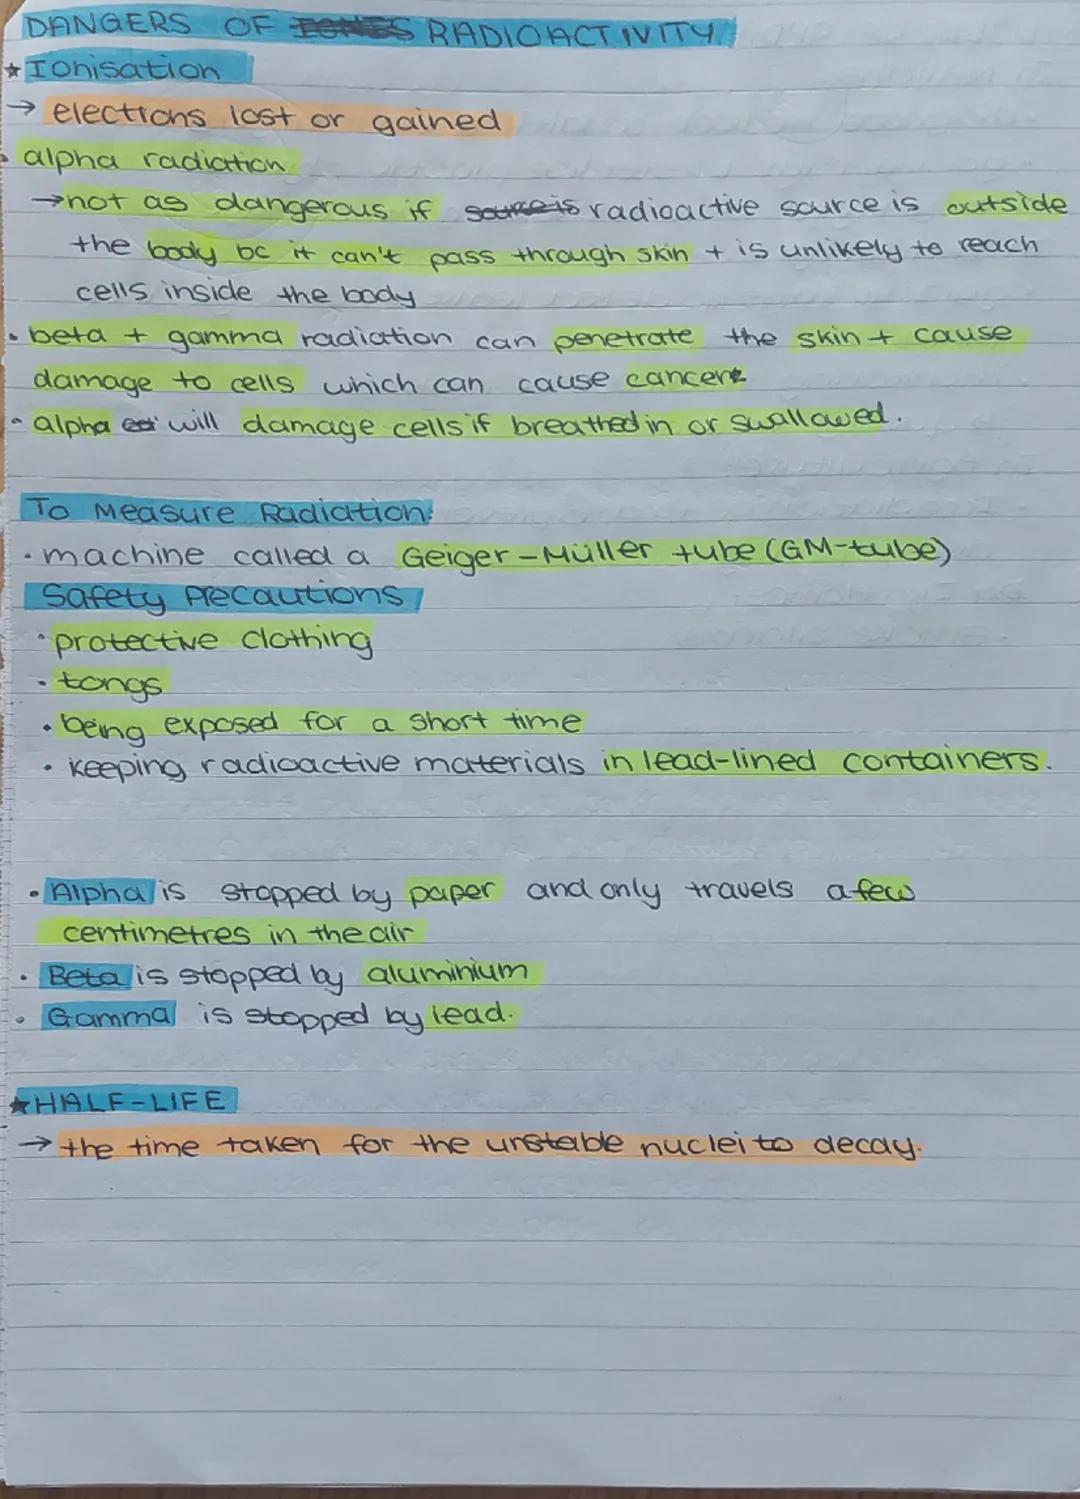 DANGERS OF RADIOACTIVITY
★ Ionisation
→ electrons lost or gained
• alpha radiation
→ not as dangerous if radioactive source is outside
the body bc it can't pass through skin + is unlikely to reach
cells inside the body
• beta + gamma radiation can penetrate the skin + cause
damage to cells which can cause cancer
• alpha will damage cells if breathed in or swallowed.
To Measure Radiation:
• machine called a Geiger-Müller tube (GM-tube)
Safety Precautions
• protective clothing
• tongs
• being exposed for a short time
• keeping radioactive materials in lead-lined containers.
• Alpha is stopped by paper and only travels a few
centimetres in the air
• Beta is stopped by aluminium
• Gamma is stopped by lead.
★ HALF-LIFE
→ the time taken for the unstable nuclei to decay.